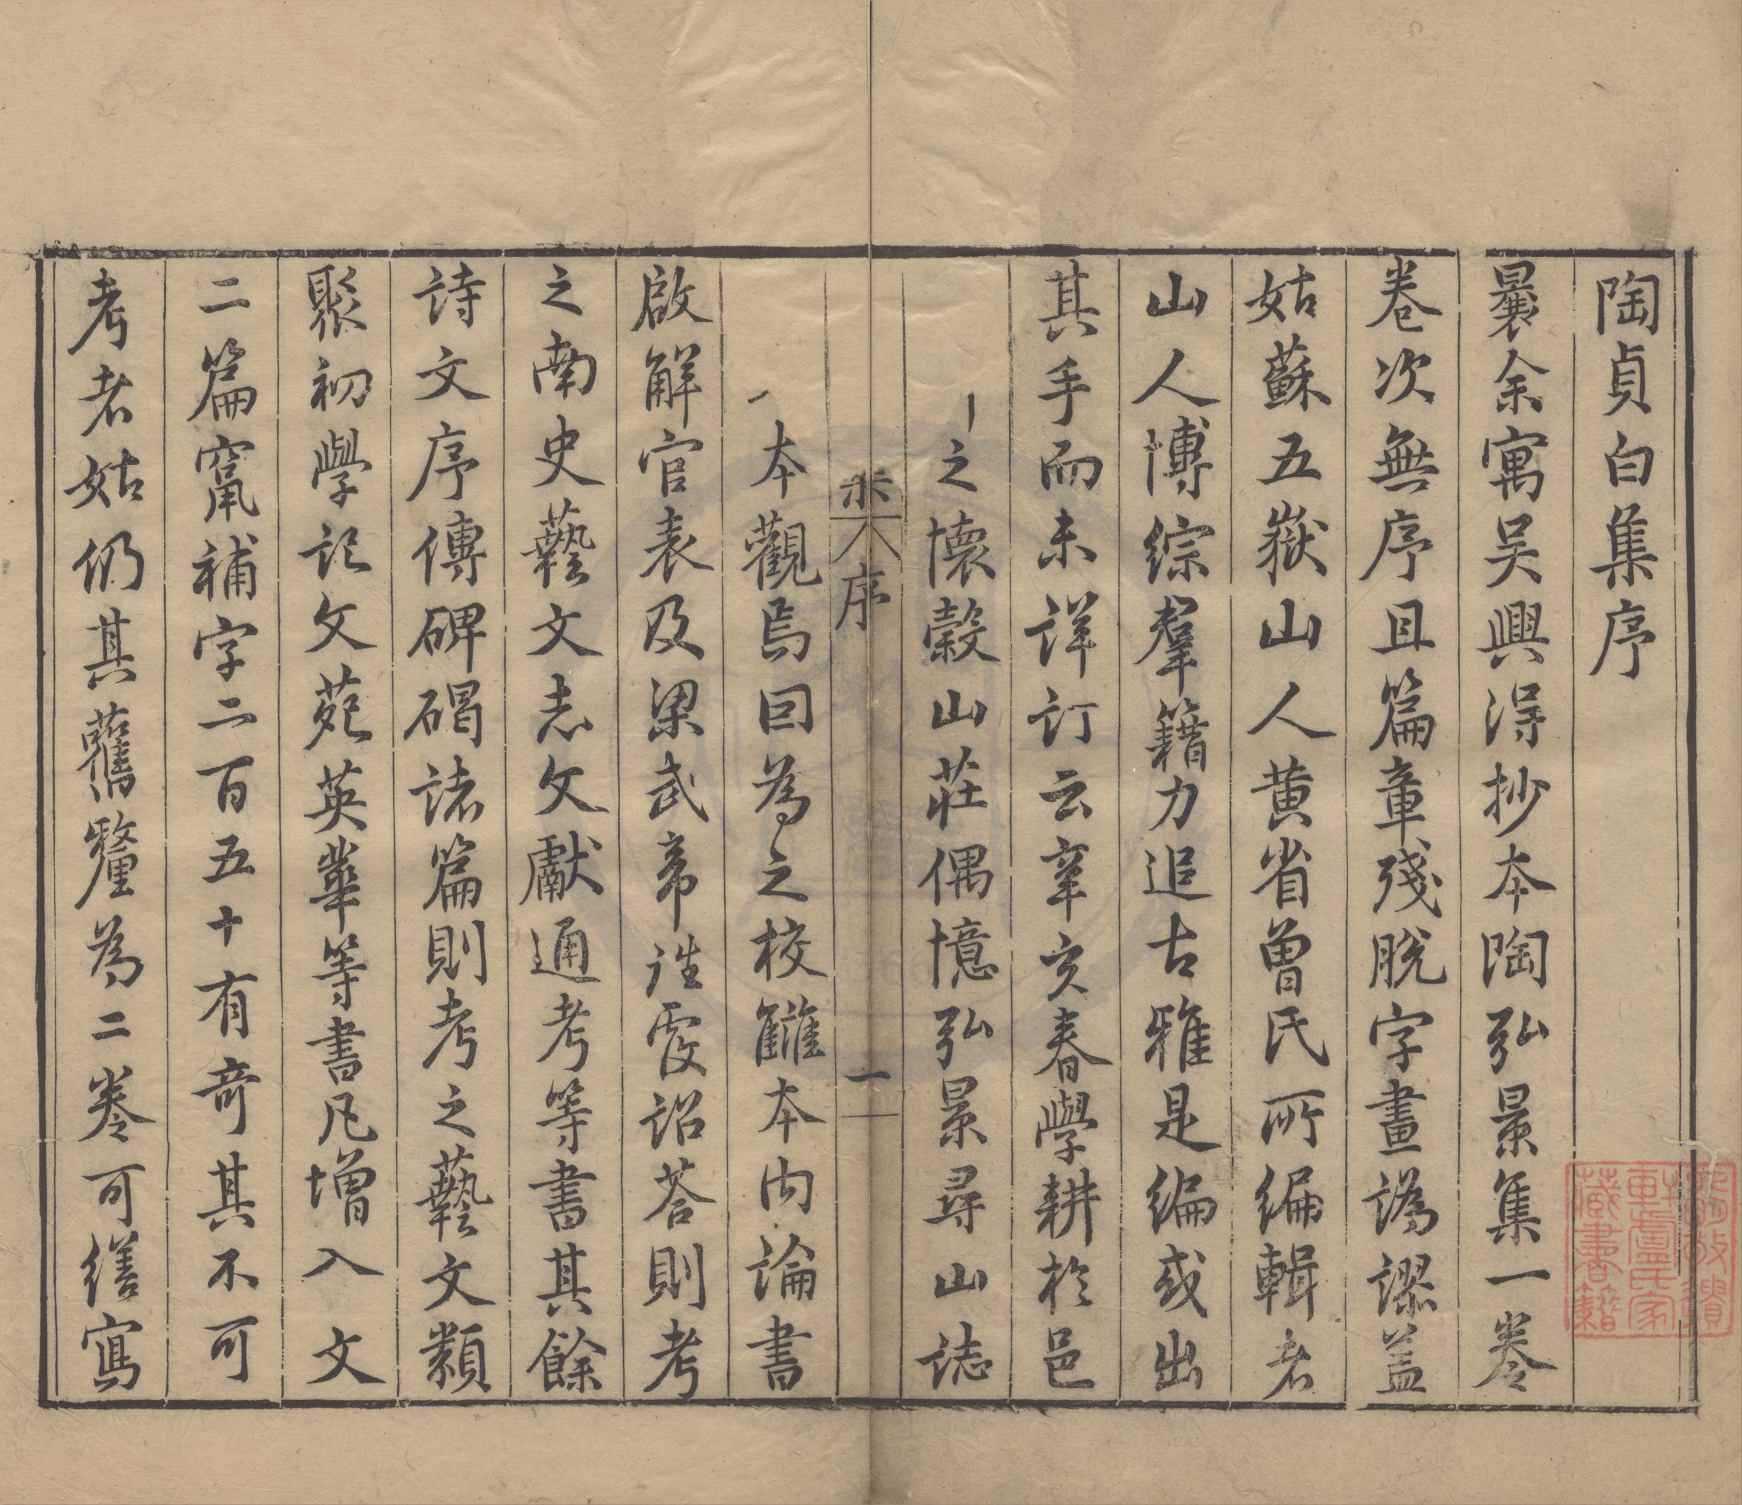 陶貞白集序
曩余寓吴興得抄本陶弘景集一卷
卷次無序且篇章殘脫字畫譌謬盖
姑蘇五嶽山人黄省曾氏所編輯者
山人博綜羣籍力追古雅是編或出
其手而未詳訂云辛亥春學耕於邑
之懷穀山莊偶憶弘景尋山誌
本觀焉回為之校讎本内論書
啟解官表及梁武帝詔荅則考
之南史藝文志文獻通考等書其餘
詩文序傳碑碣諸篇則考之藝文類
聚初學記文苑英華等書凡增入文
二篇竄補字二百五十有奇其不可
考者姑仍其舊釐為二卷可繕寫
序
一
藏書籍